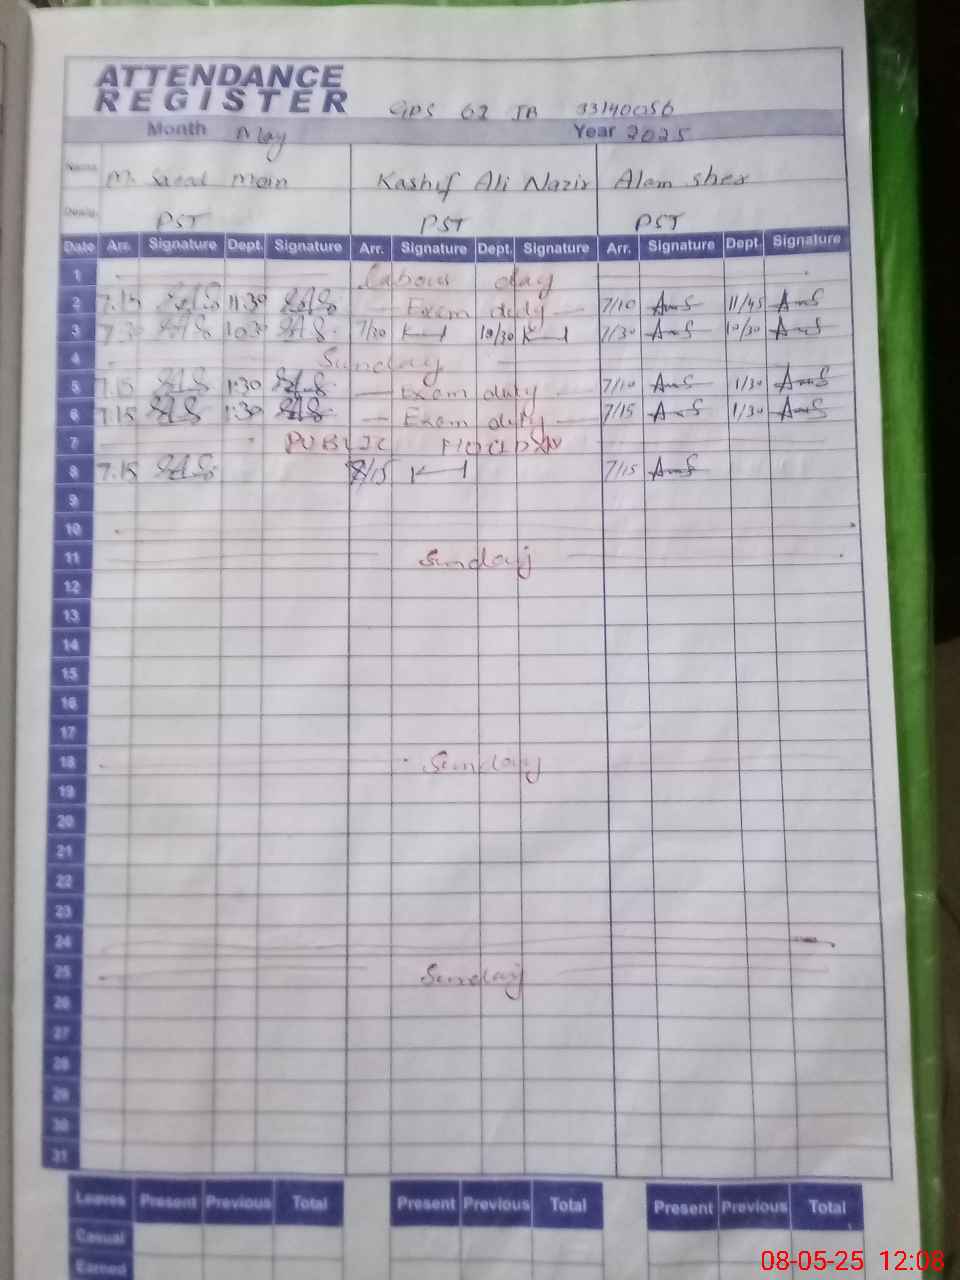 ATTENDANCE
REGISTER
GPS 62 JB 33140056
Month May Year 2025
Name M. Saeed Moin Kashif Ali Nazir Alam sher
Desig. PST PST PST
Date Arr. Signature Dept. Signature Arr. Signature Dept. Signature Arr. Signature Dept. Signature
1 Labour day
2 7.15 11.30 Exam duty 7/10 11/45
3 7.30 10.30 7/30 10/30 7/30 10/30
4 Sunday
5 7.15 1:30 Exam duty 7/10 1/30
6 7.15 1:30 Exam duty 7/15 1/30
7 PUBLIC
8 7.15 8/15 7/15
9
10
11 Sunday
12
13
14
15
16
17
18 Sunday
19
20
21
22
23
24
25 Sunday
26
27
28
29
30
31
Leaves Present Previous Total Present Previous Total Present Previous Total
Casual
Earned
08-05-25 12:08